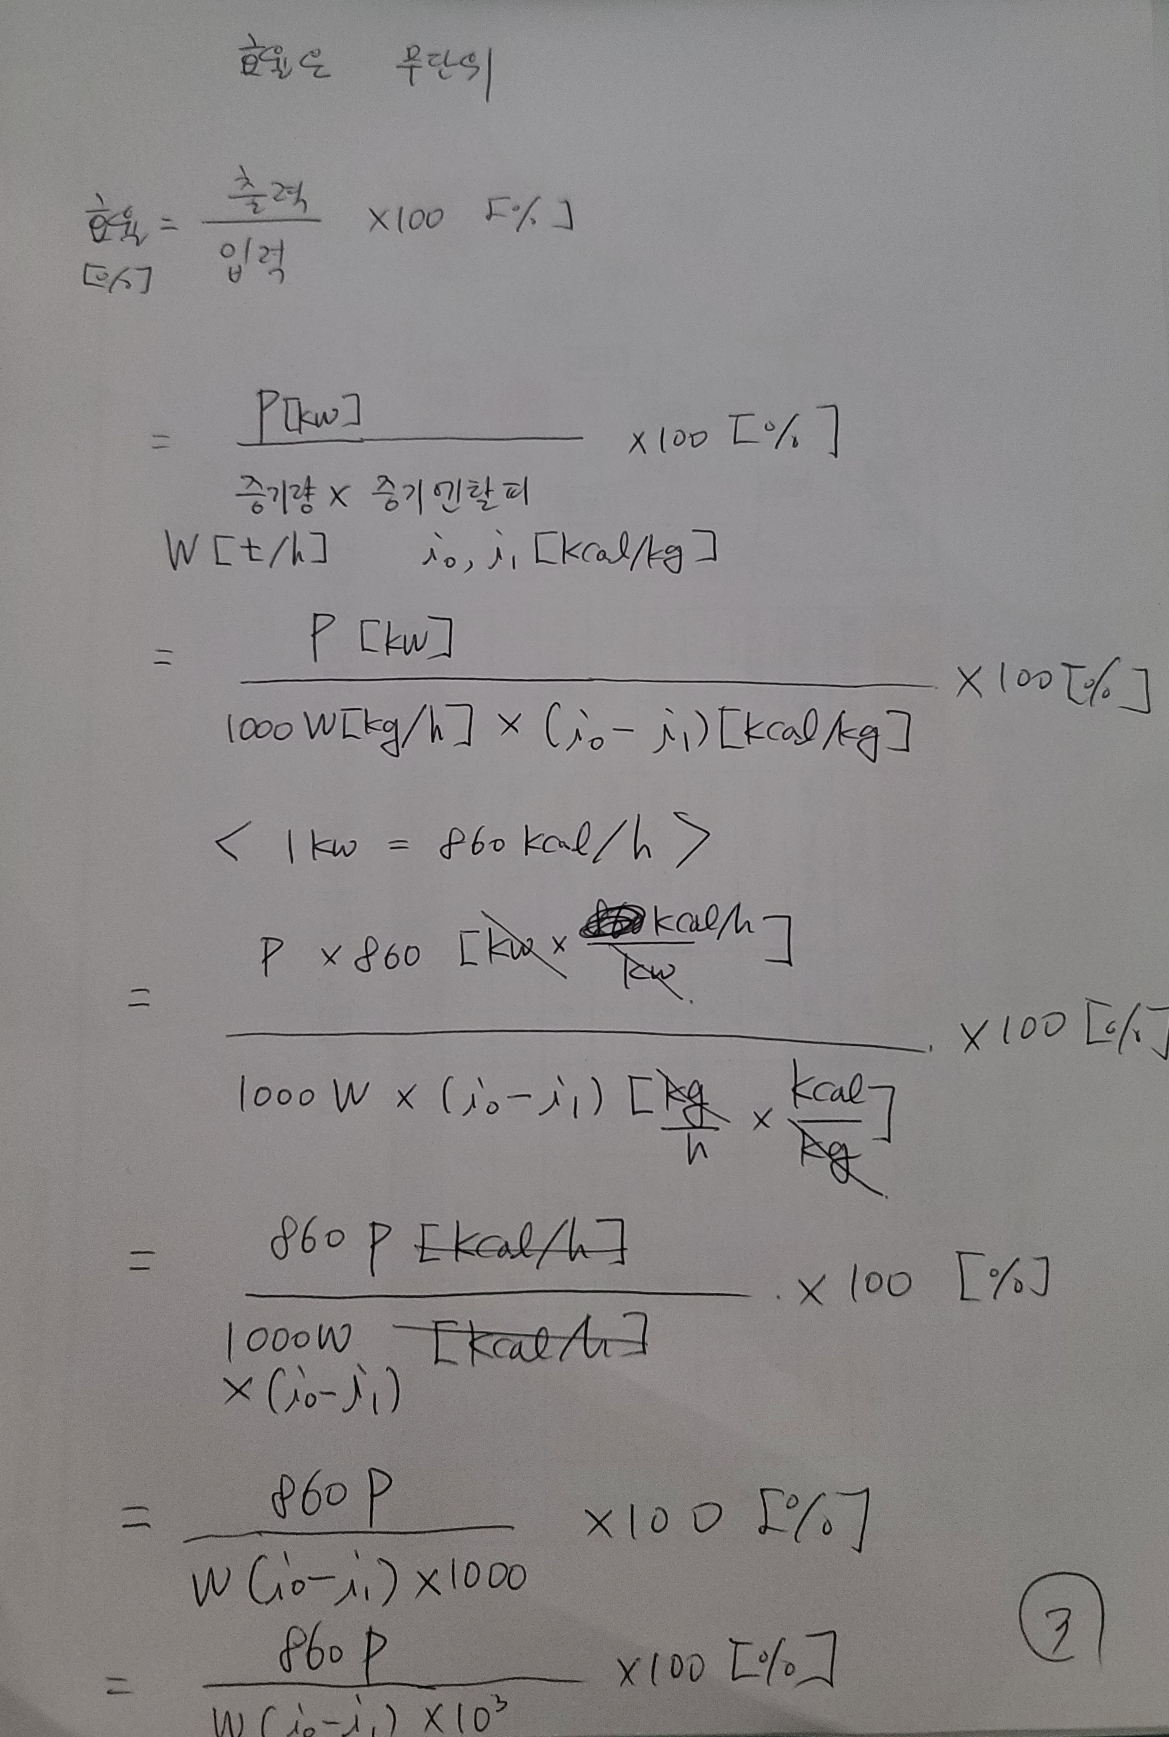 효율은 무단위
효율[%] = 출력/입력 ×100 [%]
= P[kw] / 증기량 × 증기엔탈피 ×100 [%]
W [t/h] i₀, i₁ [kcal/kg]
= P [kw] / 1000 W[kg/h] × (i₀ - i₁) [kcal/kg] ×100 [%]
< 1kw = 860 kcal/h >
= P × 860 [kw × kcal/h / kw] / 1000 W × (i₀-i₁) [kg/h × kcal/kg] ×100 [%]
= 860 P [kcal/h] / 1000W [kcal/h] × (i₀-i₁) ×100 [%]
= 860 P / W (i₀-i₁) ×1000 ×100 [%]
= 860 P / W (i₀-i₁) ×10³ ×100 [%]
③